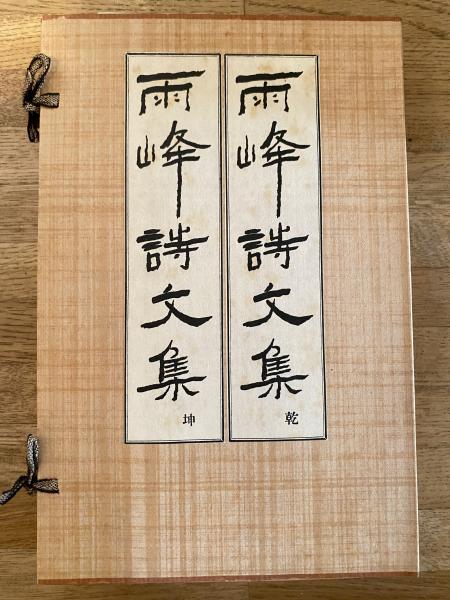 雨峰詩文集
乾
雨峰詩文集
坤